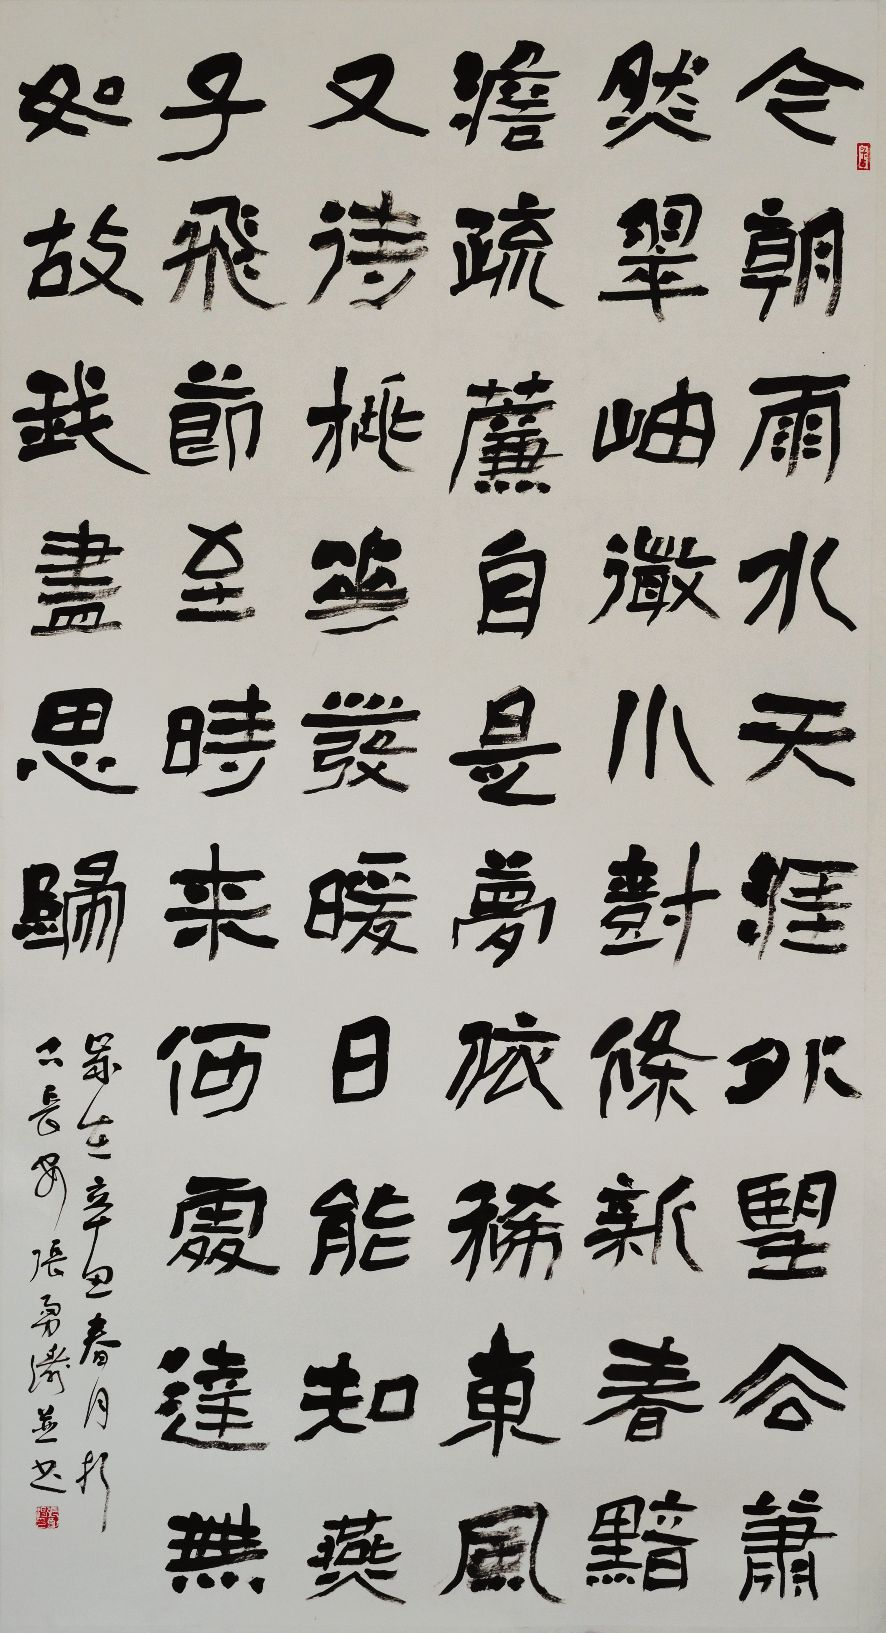 今朝雨水天涯外望谷蕭
然翠岫微小對條新春黯
澹疏簾自是夢依稀東風
又待桃花發暖日能知燕
子飛節至時来何處達無
如故我盡思歸
歲在辛丑春月於
古長安張勇並书